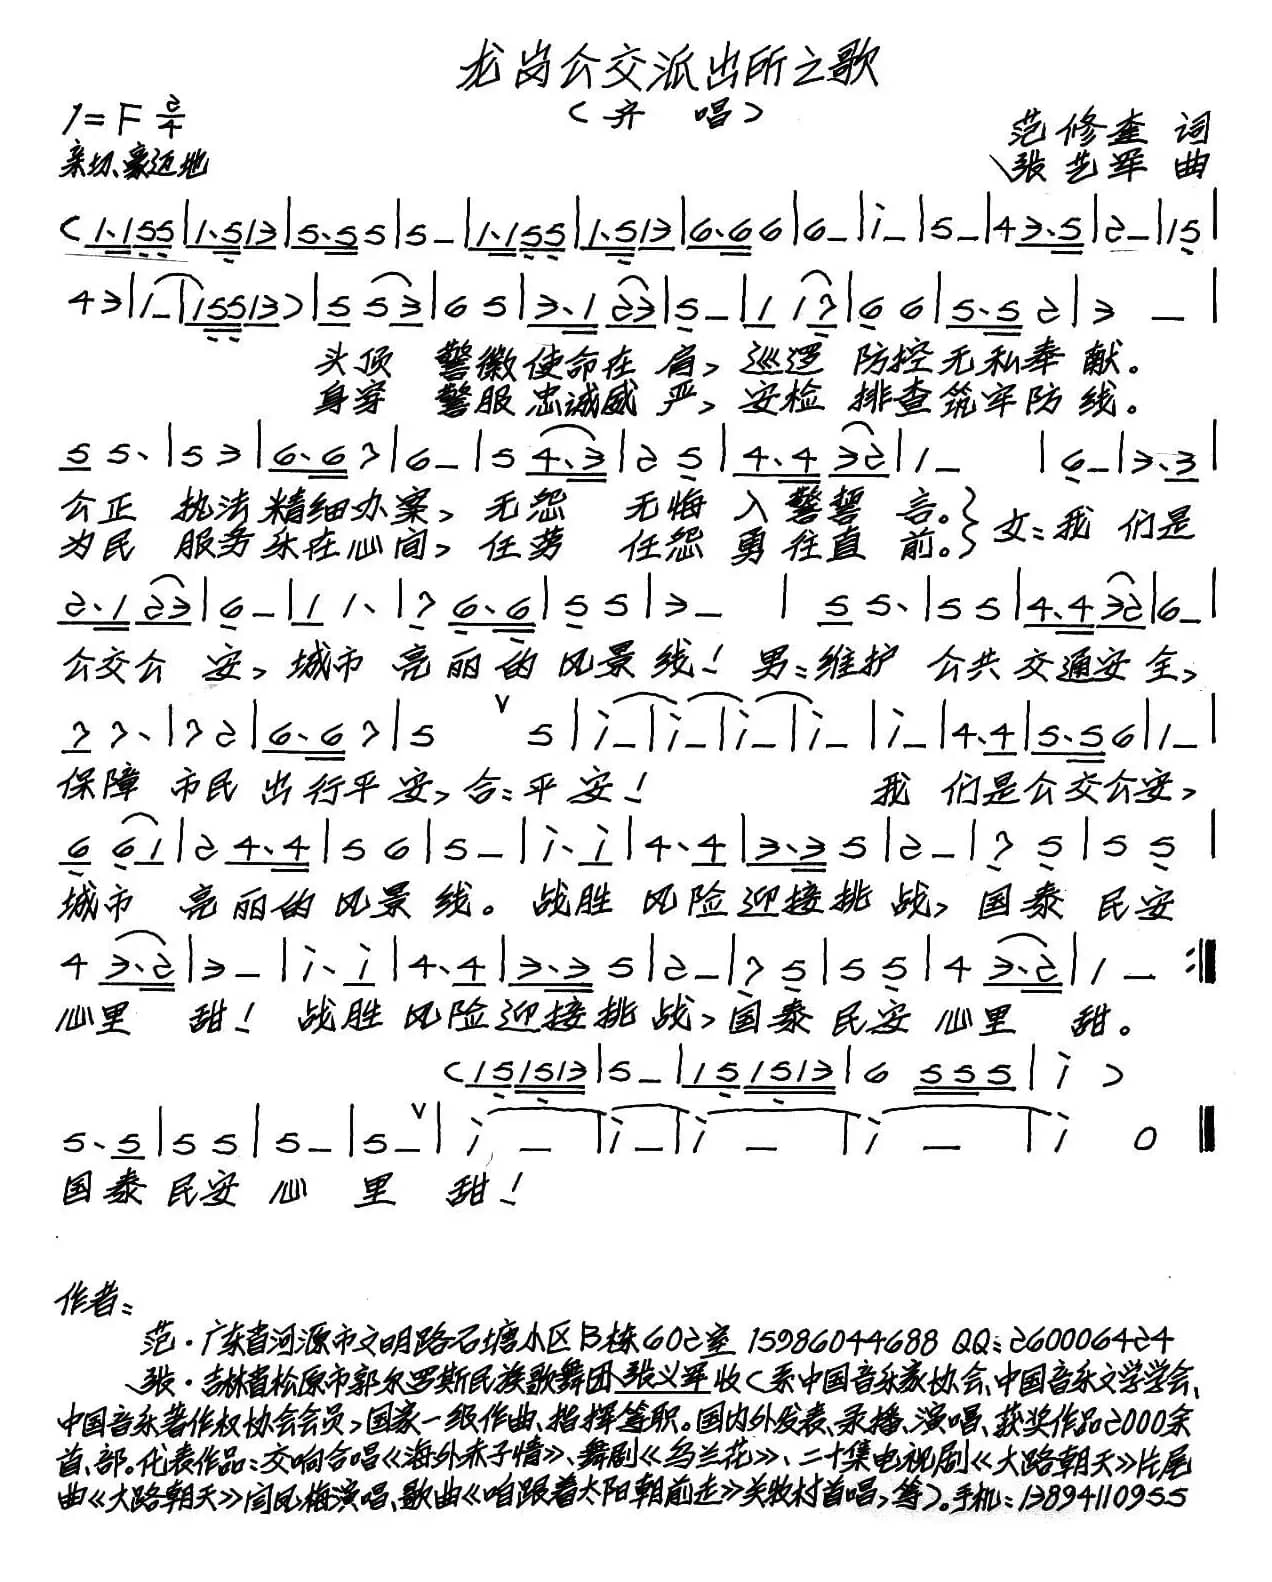 龙岗公交派出所之歌
（齐 唱）
1=F 2/4
亲切、豪迈地
范修奎 词
张艺军 曲
(1·155|1·513|5·555|5–|1·155|1·513|6·666|6–|i–|5–|43·5|2–|15|
43|1–|15513)|553|65|3·123|5–|1i7|66|5·52|3 –|
头顶 警徽使命在 肩，巡逻 防控无私奉 献。
身穿 警服忠诚威 严，安检 排查筑牢防 线。
55·|53|6·67|6–|54·3|25|4·432|1–|6–|3·3|
公正 执法精细办案，无怨 无悔 入警誓 言。} 女：我 们是
为民 服务乐在心间，任劳 任怨 勇往直 前。}
2·123|6–|11·|76·6|55|3–|55·|55|4·432|6–|
公交公 安，城市 亮丽的风景线！男：维护 公共交通安全，
77·|72|6·67|5 ∨ 5|i–|i–|i–|i–|i–|4·4|5·56|1–|
保障 市民 出行平安，合：平安！ 我 们是公交公安，
661|24·4|56|5–|i·i|4·4|3·35|2–|75|55|
城市 亮丽的 风景线。战胜 风险迎接挑战，国泰 民安
43·2|3–|i·i|4·4|3·35|2–|75|55|43·2|1– :‖
心里 甜！战胜 风险迎接挑战，国泰 民安 心里 甜。
(151513|5–|151513|6555|i)
5·5|55|5–|5–∨|i –|i–|i –|i –|i 0‖
国泰 民安 心 里 甜！
作者：
范·广东省河源市文明路石塘小区B栋602室 15986044688 QQ：260006424
张·吉林省松原市郭尔罗斯民族歌舞团张义军收（系中国音乐家协会、中国音乐文学学会、
中国音乐著作权协会会员，国家一级作曲、指挥等职。国内外发表、录播、演唱、获奖作品2000余
首、部。代表作品：交响合唱《海外赤子情》、舞剧《乌兰花》、二十集电视剧《大路朝天》片尾
曲《大路朝天》闫凤梅演唱、歌曲《咱跟着太阳朝前走》关牧村首唱，等）。手机：13894110955